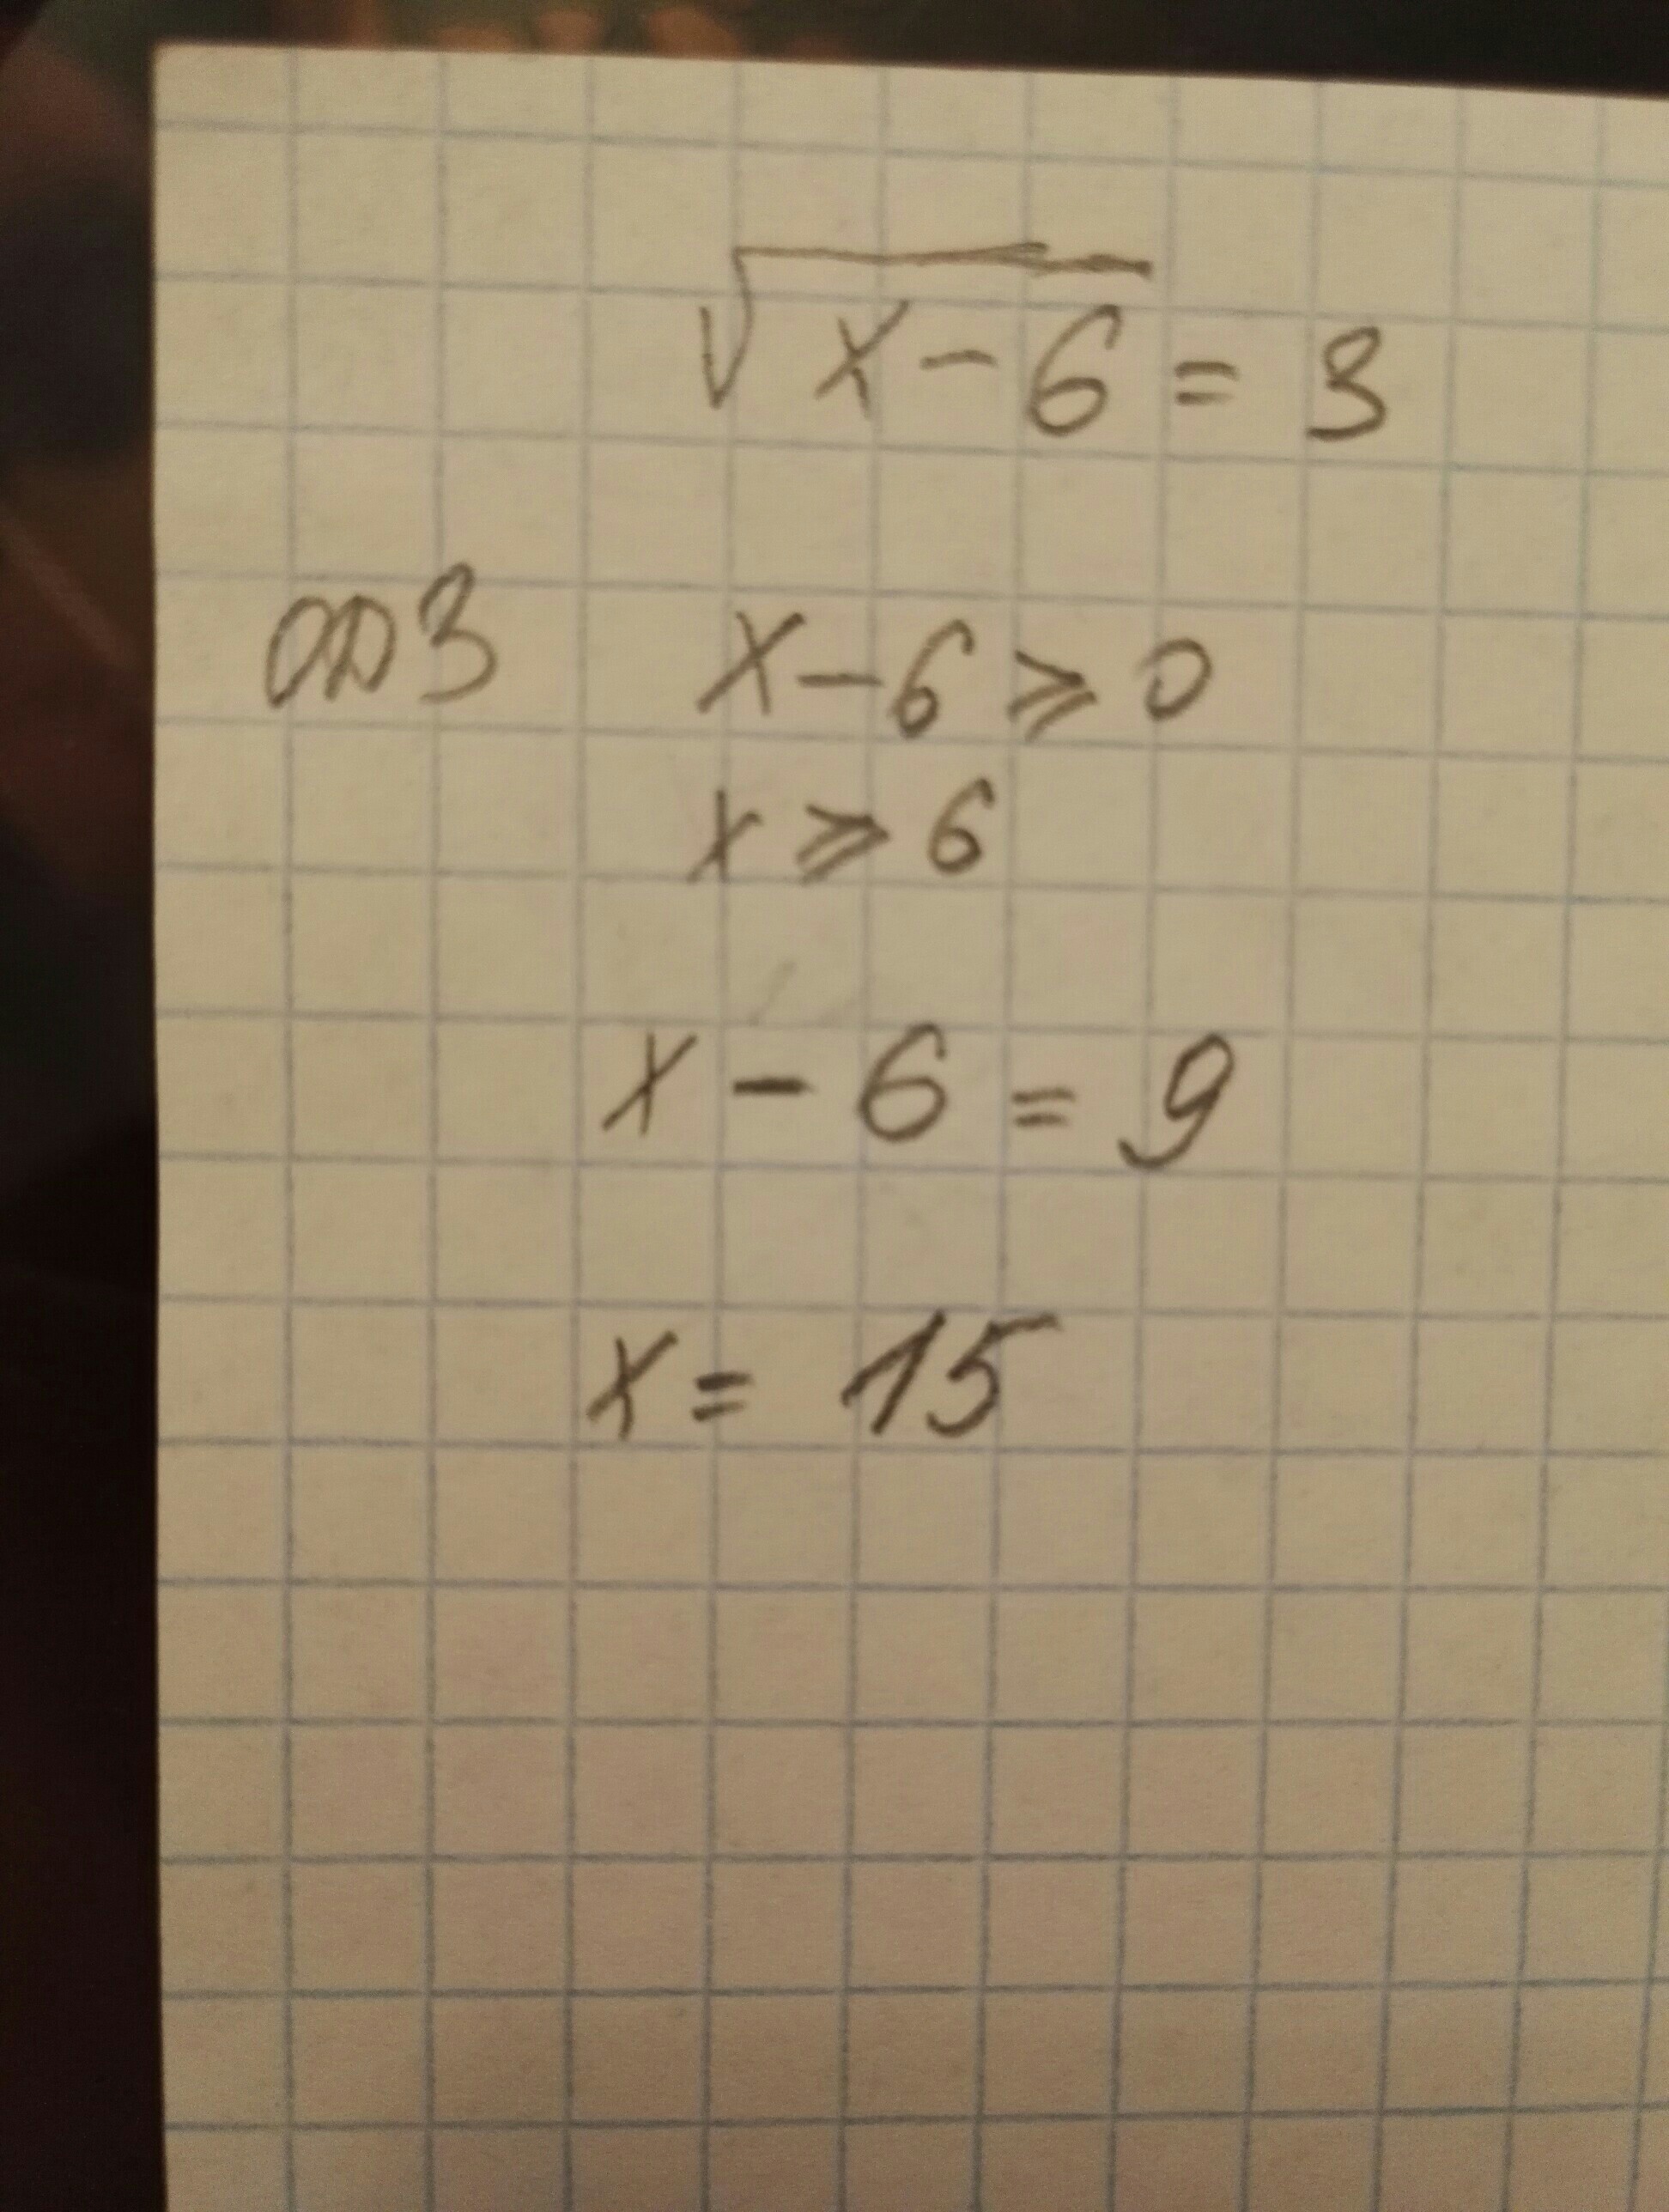 √x-6 = 3
ОДЗ x-6⩾0
x⩾6
x-6=9
x=15